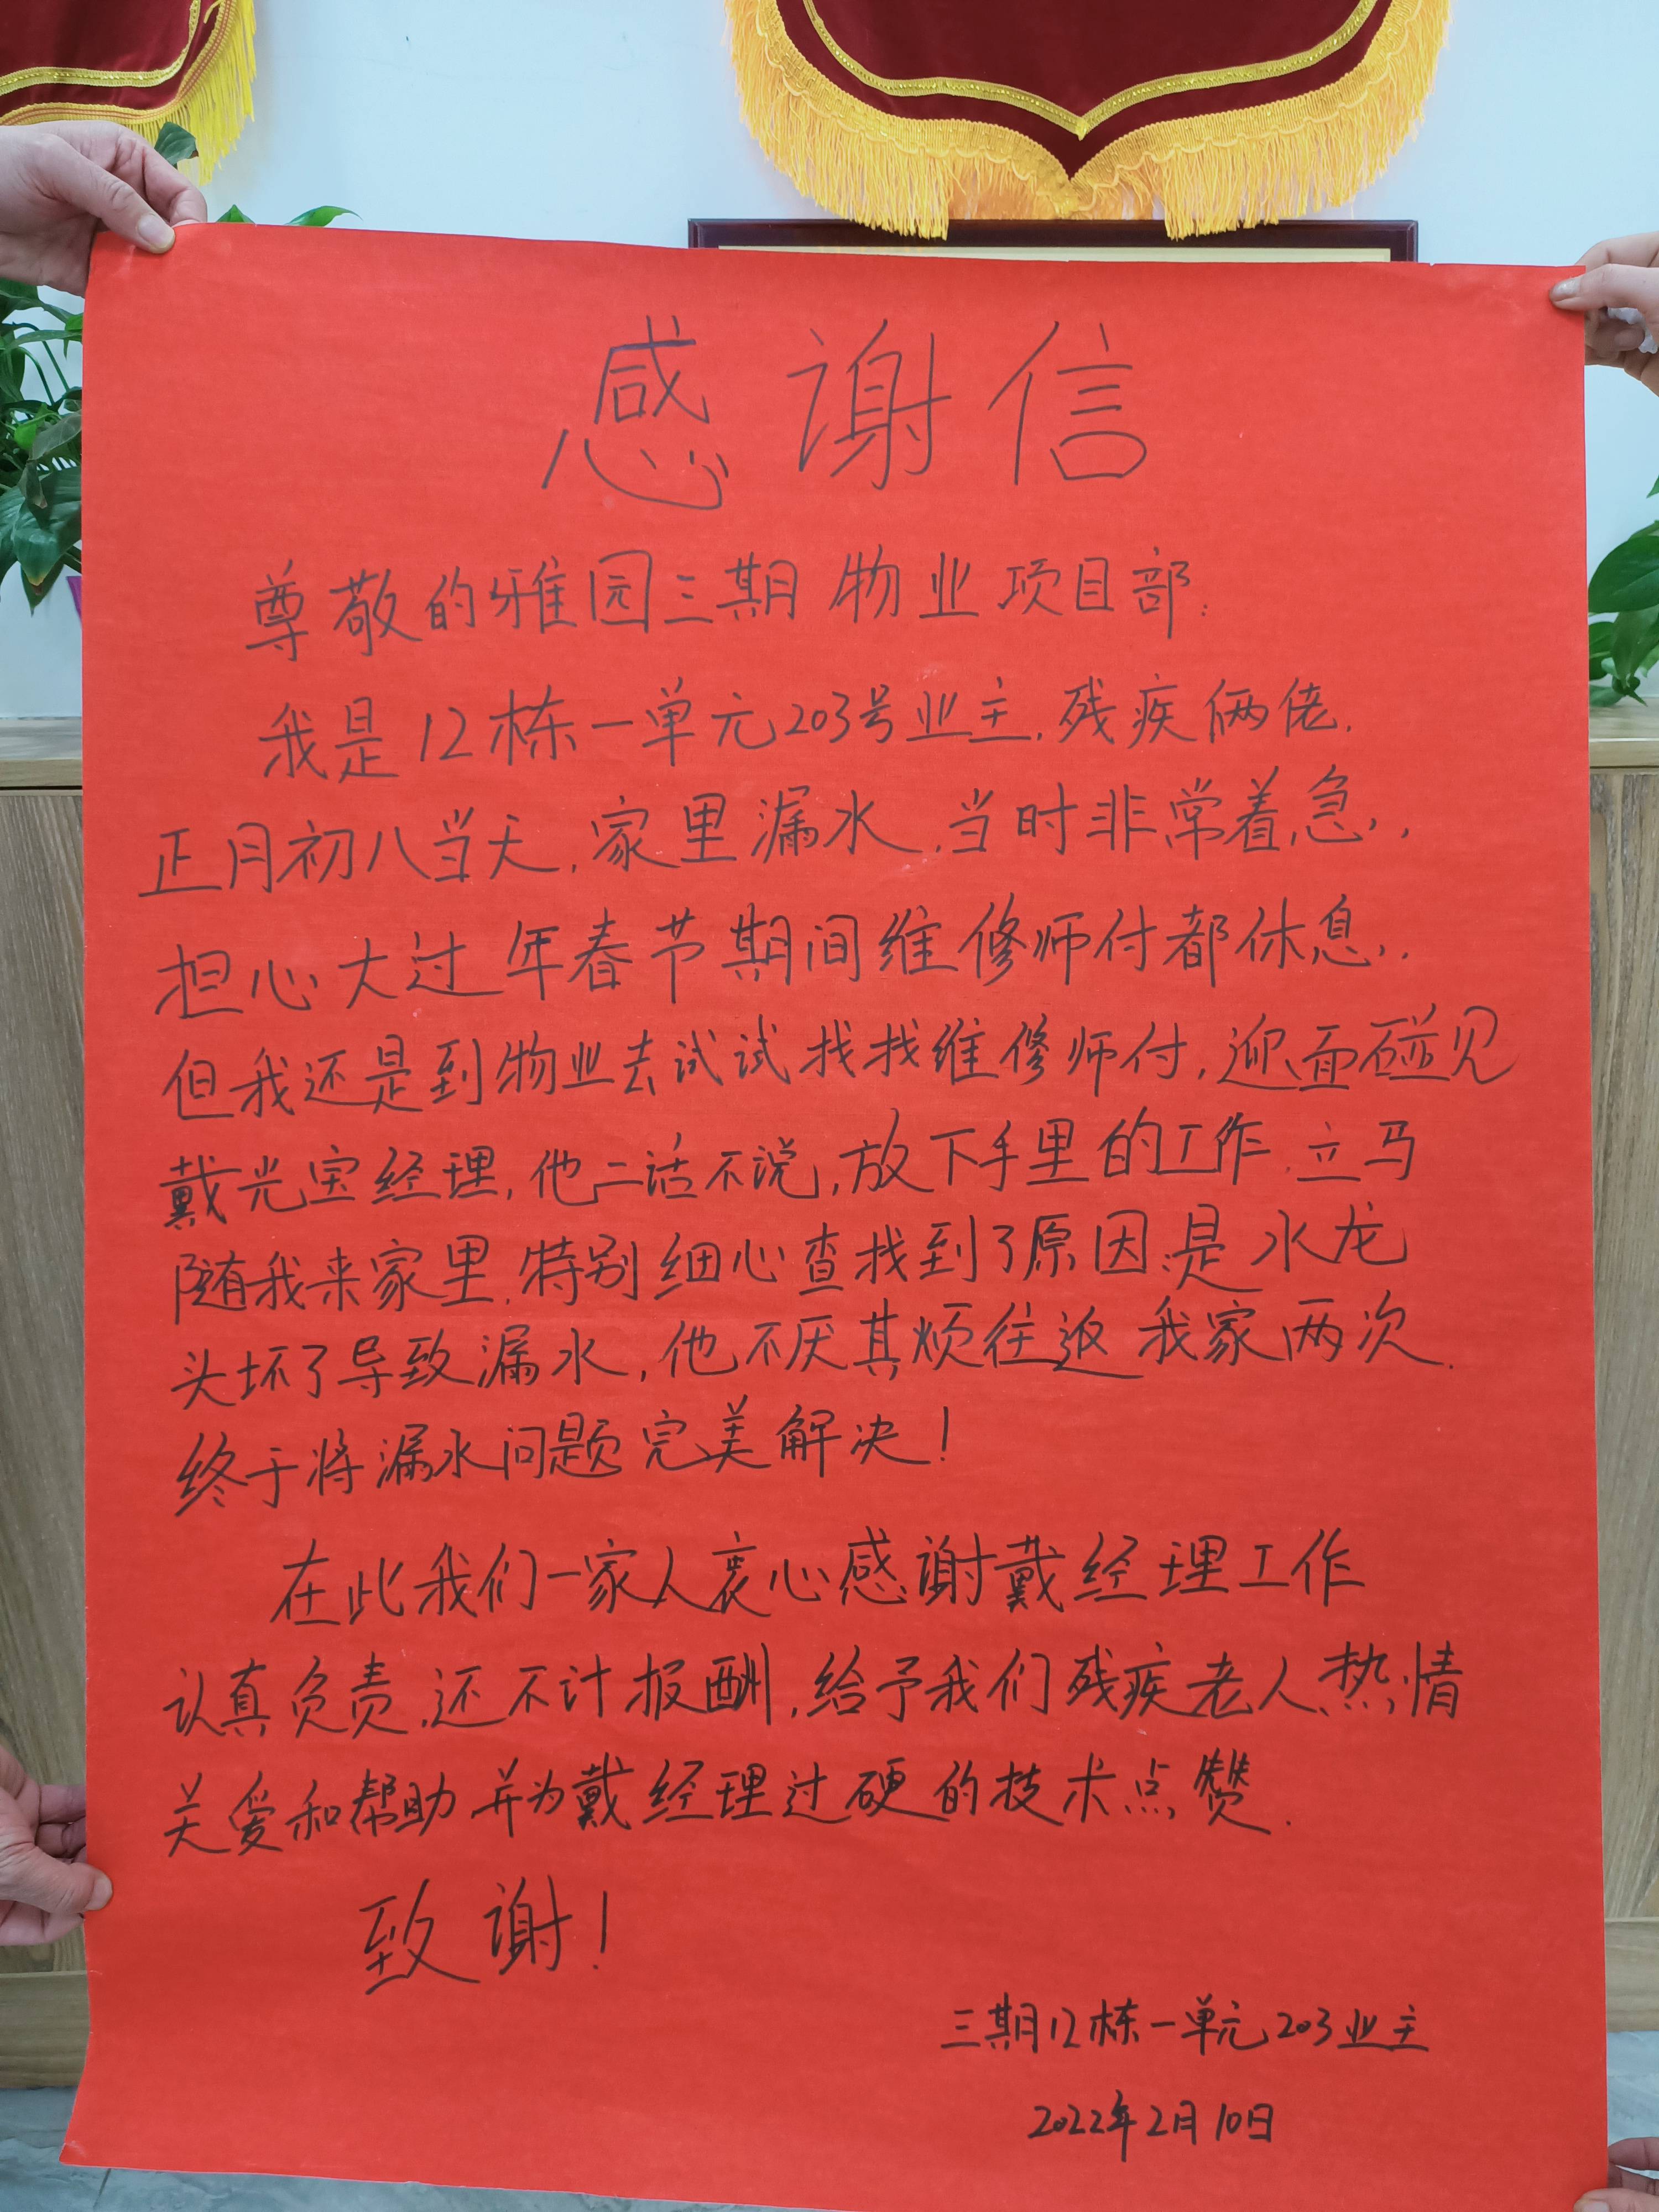 感谢信
尊敬的雅园三期物业项目部:
我是12栋一单元203号业主.残疾俩佬.
正月初八当天,家里漏水,当时非常着急,
担心大过年春节期间维修师付都休息,
但我还是到物业去试试找找维修师付,迎面碰见
戴光宝经理,他二话不说,放下手里的工作.立马
随我来家里.特别细心查找到了原因:是水龙
头坏了导致漏水,他不厌其烦往返我家两次.
终于将漏水问题完美解决!
在此我们一家人衷心感谢戴经理工作
认真负责.还不计报酬,给予我们残疾老人热情
关爱和帮助.并为戴经理过硬的技术点赞.
致谢!
三期12栋一单元203业主
2022年2月10日